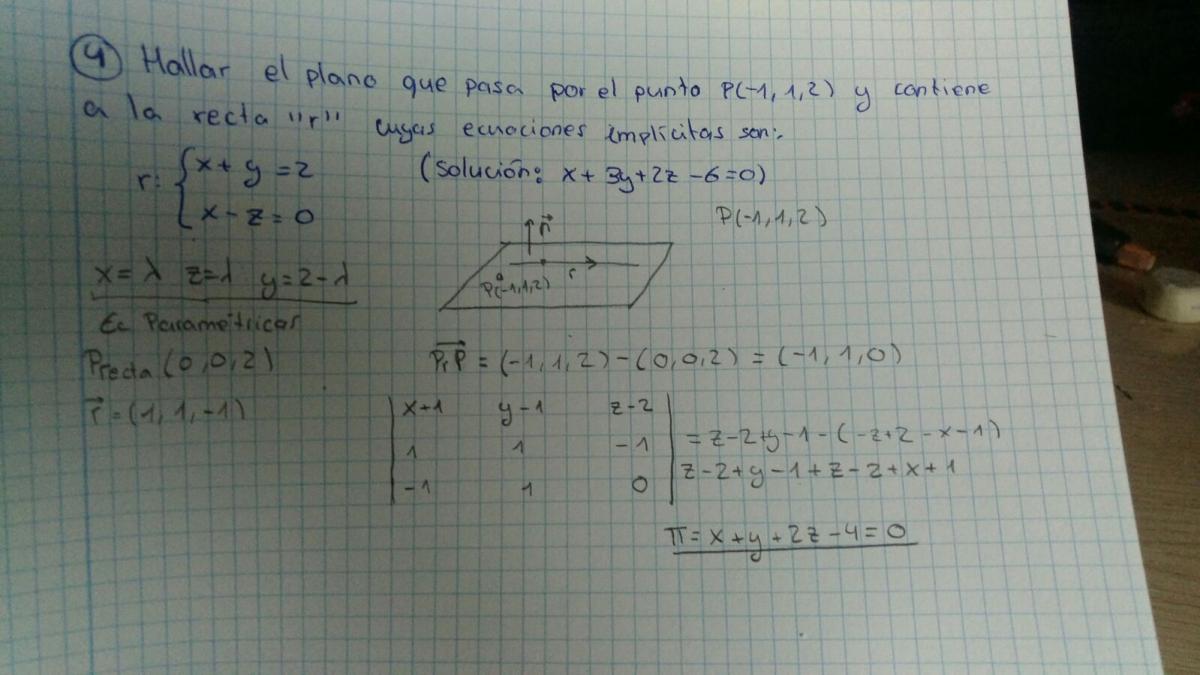 4 Hallar el plano que pasa por el punto P(-1,1,2) y contiene
a la recta "r" cuyas ecuaciones implícitas son:
r: { x + y = 2 (Solución: x + 3y + 2z - 6 = 0)
x - z = 0 P(-1,1,2)
n⃗
x = λ z = λ y = 2 - λ
r
P(-1,1,2)
Ec Paramétricas
Precta (0,0,2) PrP⃗ = (-1,1,2) - (0,0,2) = (-1,1,0)
r⃗ = (1,1,-1)
| x+1 y-1 z-2 |
| 1 1 -1 | = z-2+y-1-(-z+2-x-1)
| -1 1 0 | z-2+y-1+z-2+x+1
π = x + y + 2z - 4 = 0